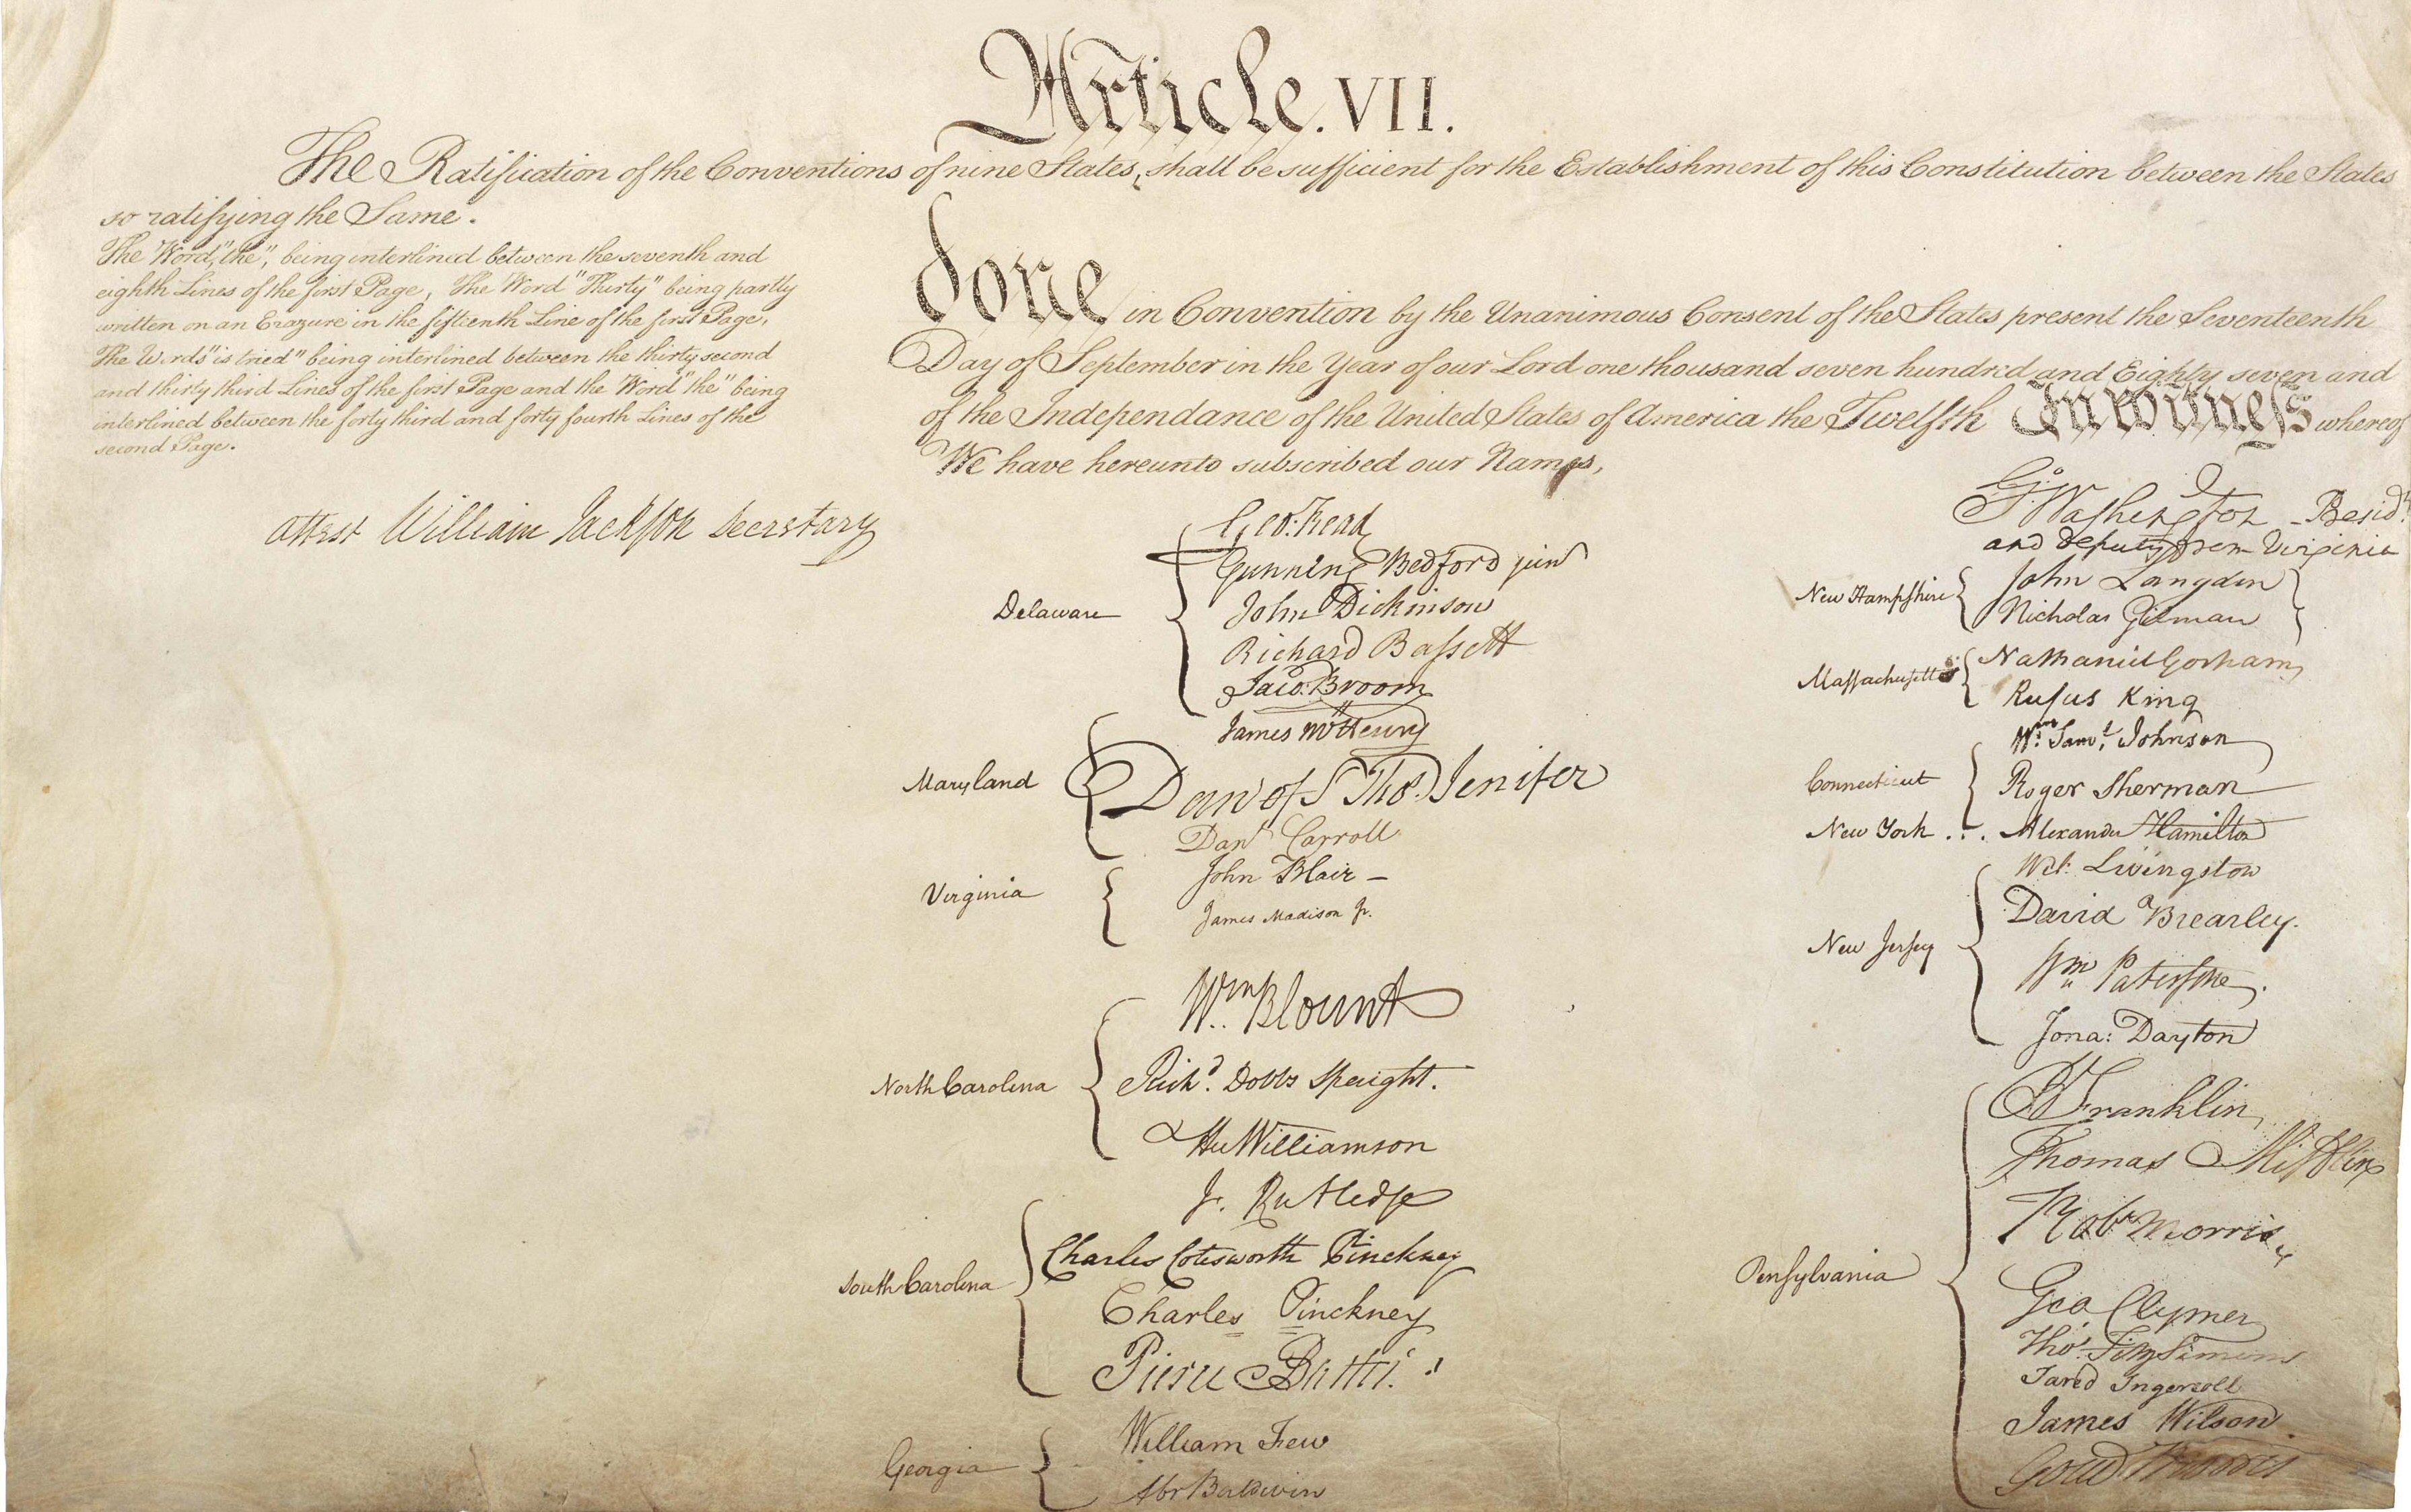 Article. VII.
The Ratification of the Conventions of nine States, shall be sufficient for the Establishment of this Constitution between the States
so ratifying the Same.
The Word, "the", being interlined between the seventh and
eighth Lines of the first Page, The Word "Thirty" being partly
written on an Erazure in the fifteenth Line of the first Page,
The Words "is tried" being interlined between the thirty second
and thirty third Lines of the first Page and the Word "the" being
interlined between the forty third and forty fourth Lines of the
second Page.
Attest William Jackson Secretary
done in Convention by the Unanimous Consent of the States present the Seventeenth
Day of September in the Year of our Lord one thousand seven hundred and Eighty seven and
of the Independance of the United States of America the Twelfth In Witness whereof
We have hereunto subscribed our Names,
Delaware
Geo: Read
Gunning Bedford jun
John Dickinson
Richard Bassett
Jaco: Broom
Maryland
James McHenry
Dan of St Thos. Jenifer
Danl Carroll
Virginia
John Blair —
James Madison Jr.
North Carolina
Wm Blount
Richd. Dobbs Spaight.
Hu Williamson
South Carolina
J. Rutledge
Charles Cotesworth Pinckney
Charles Pinckney
Pierce Butler.
Georgia
William Few
Abr Baldwin
Go. Washington - Presidt.
and deputy from Virginia
New Hampshire
John Langdon
Nicholas Gilman
Massachusetts
Nathaniel Gorham
Rufus King
Connecticut
Wm. Saml. Johnson
Roger Sherman
New York . . . Alexander Hamilton
New Jersey
Wil: Livingston
David Brearley.
Wm Paterson.
Jona: Dayton
Pensylvania
B Franklin
Thomas Mifflin
Robt Morris
Geo. Clymer
Thos. FitzSimons
Jared Ingersoll
James Wilson.
Gouv Morris